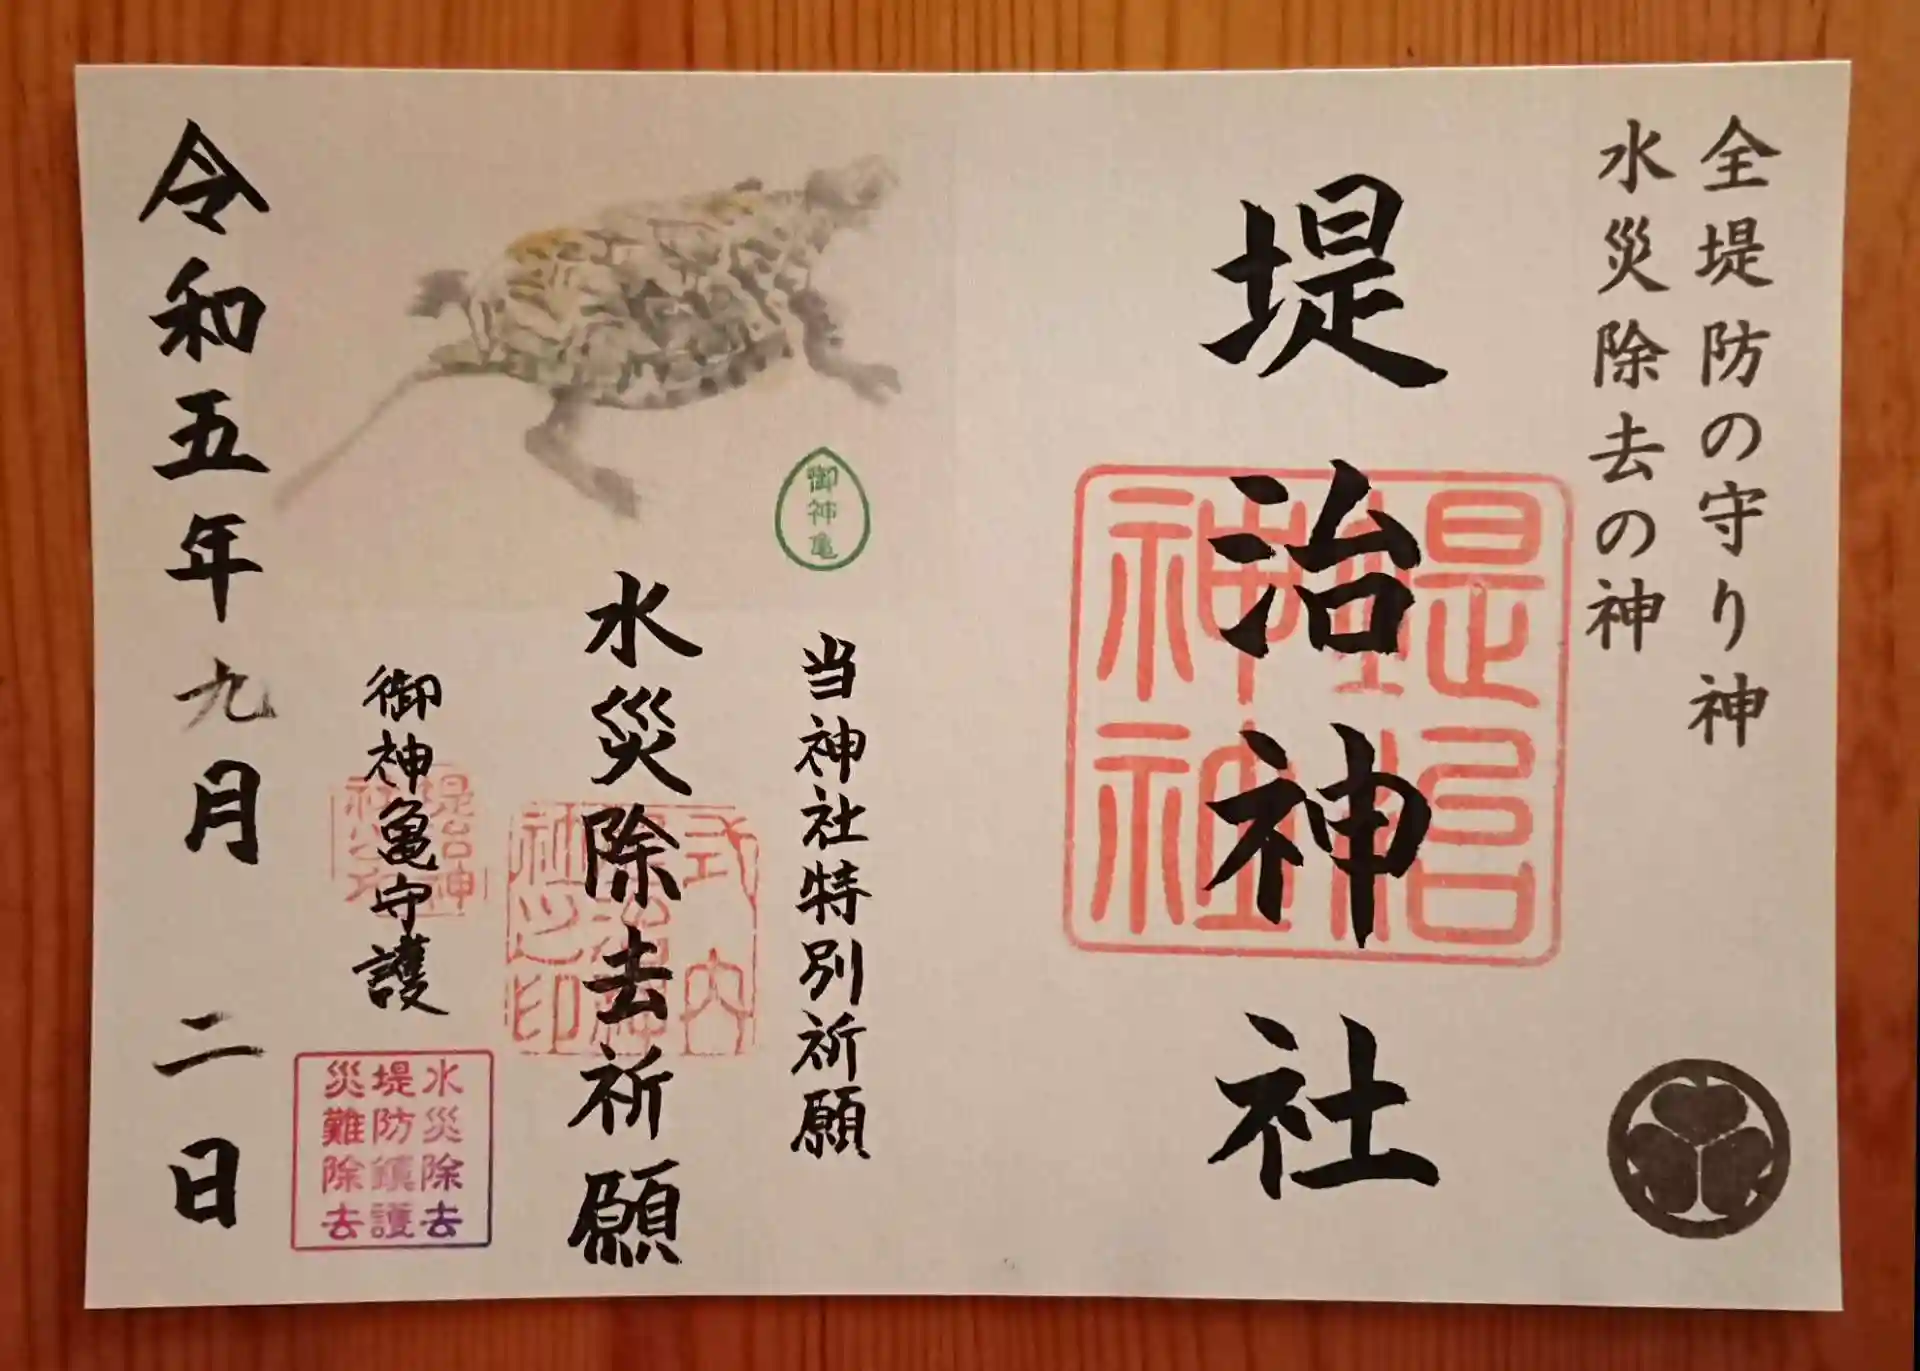 全堤防の守り神
水災除去の神
堤治神社
堤治神社
御神亀
当神社特別祈願
水災除去祈願
式内
社之印
御神亀守護
水災除去
堤防鎮護
災難除去
令和五年九月二日